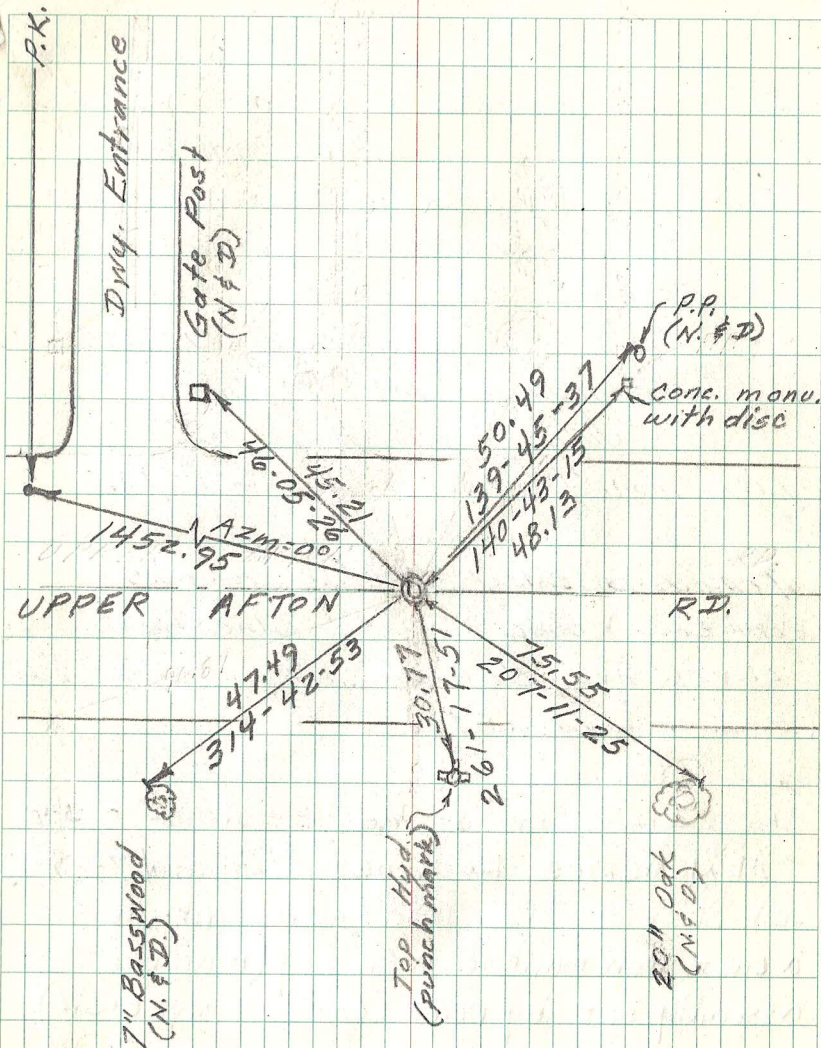 P.K.
Dwy. Entrance
Gate Post
(N & D)
P.P.
(N. & D)
conc. monu.
with disc
50.49
139-45-37
140-43-15
48.13
45.21
46-05-26
Azm=0°
1452.95
UPPER AFTON RD.
47.49
314-42-53
30.77
261-17-51
75.55
207-11-25
7" Basswood
(N. & D.)
Top Hyd.
(punch mark)
20" Oak
(N & D.)